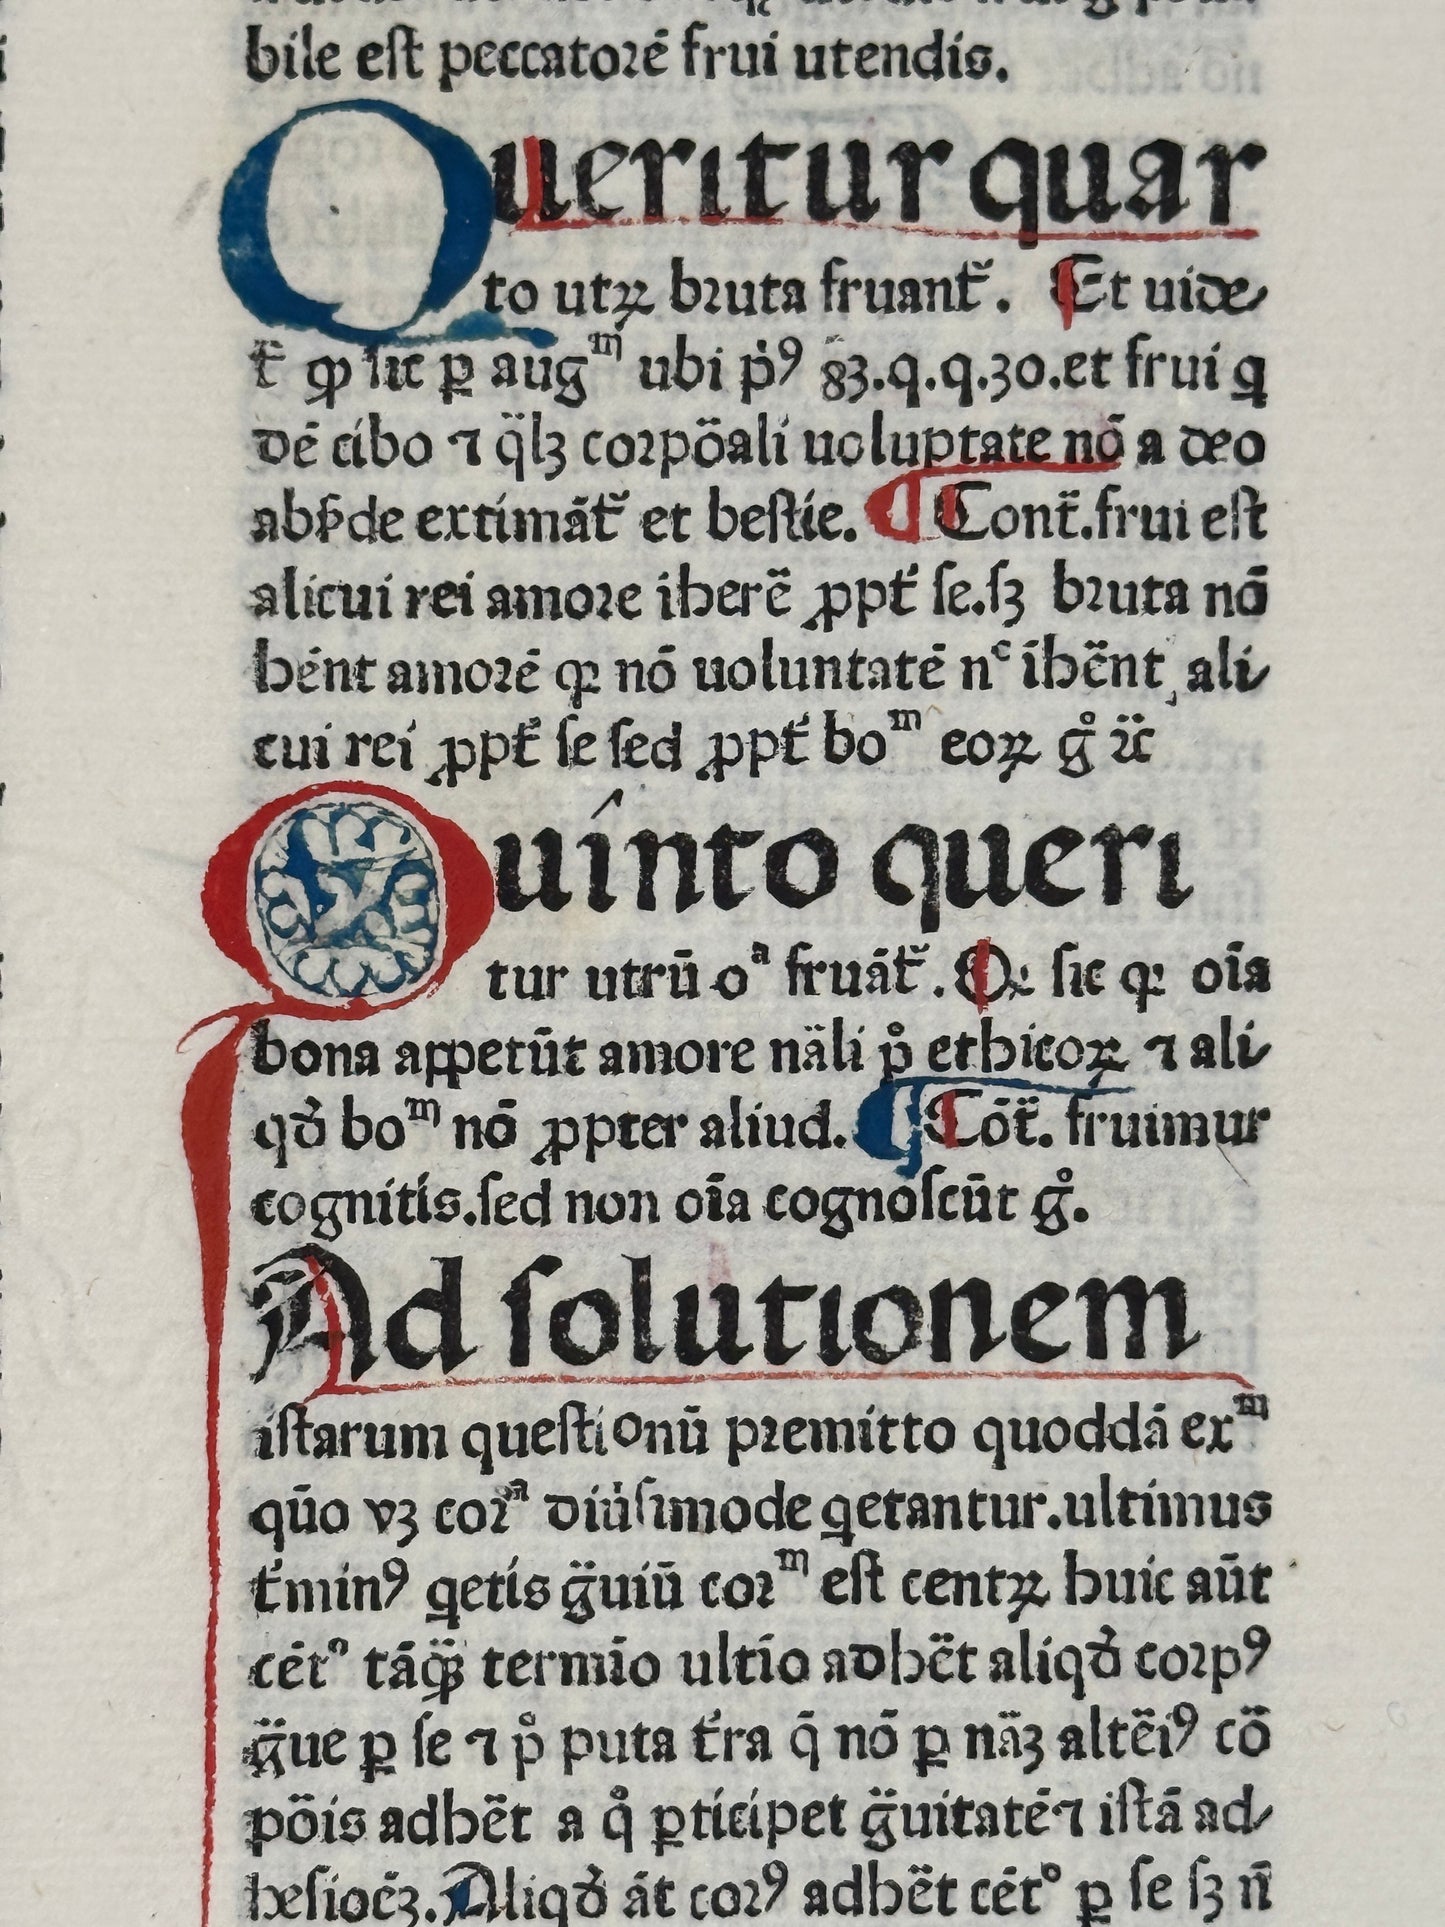 bile eſt peccatoꝛē frui utendis.
Queritur quar
to utꝝ bꝛuta fruant̄. Et uide
t̄ ꝙ sic ꝑ augᵐ ubi ṗꝰ 83.q.q.30.et frui q̲
dē cibo ⁊ q̈lꝫ coꝛpöali uoluptate nō a deo
abſꝛde extimāt̄ et beſtie. Cont̄.frui eſt
alicui rei amoꝛe iherē ꝓpt̄ ſe.ſꝫ bꝛuta nō
hēnt amoꝛē ꝙ nō uoluntatē nᶜ īhēnt ali
cui rei ꝓpt̄ ſe ſed ꝓpt̄ boᵐ eoꝝ g̊ ⁊c̈
Quinto queri
tur utrū oᵃ fruāt̄. ſic ꝙ oīa
bona appetūt amore näli p̊ ethicoꝝ ⁊ ali
qđ boᵐ nō ꝓpter aliud. Cōt̄. fruimur
cognitis.ſed non oīa cognoſcūt g̊.
Ad ſolutionem
iſtarum queſtionū pꝛemitto quoddā exᵐ
qūo vꝫ coꝛᵃ diu̇ſimode q̲etantur.ultimus
t̄minꝰ q̲etis g̈uiū coꝛᵐ eſt centꝝ huic aūt
cēt° tāꝙ̈ termīo ultīo adhēt aliqđ coꝛpꝰ
g̈ue ꝑ ſe ⁊ p̊ puta t̄ra q̄ nō ꝑ näꝫ altēiꝰ cö
pöis adhēt a q̊ ꝑticipet g̈uitatē⁊ iſtā ad
heſioēꝫ.Aliqđ āt coꝛꝰ adhēt cēt° ꝑ ſe ſꝫ n̄